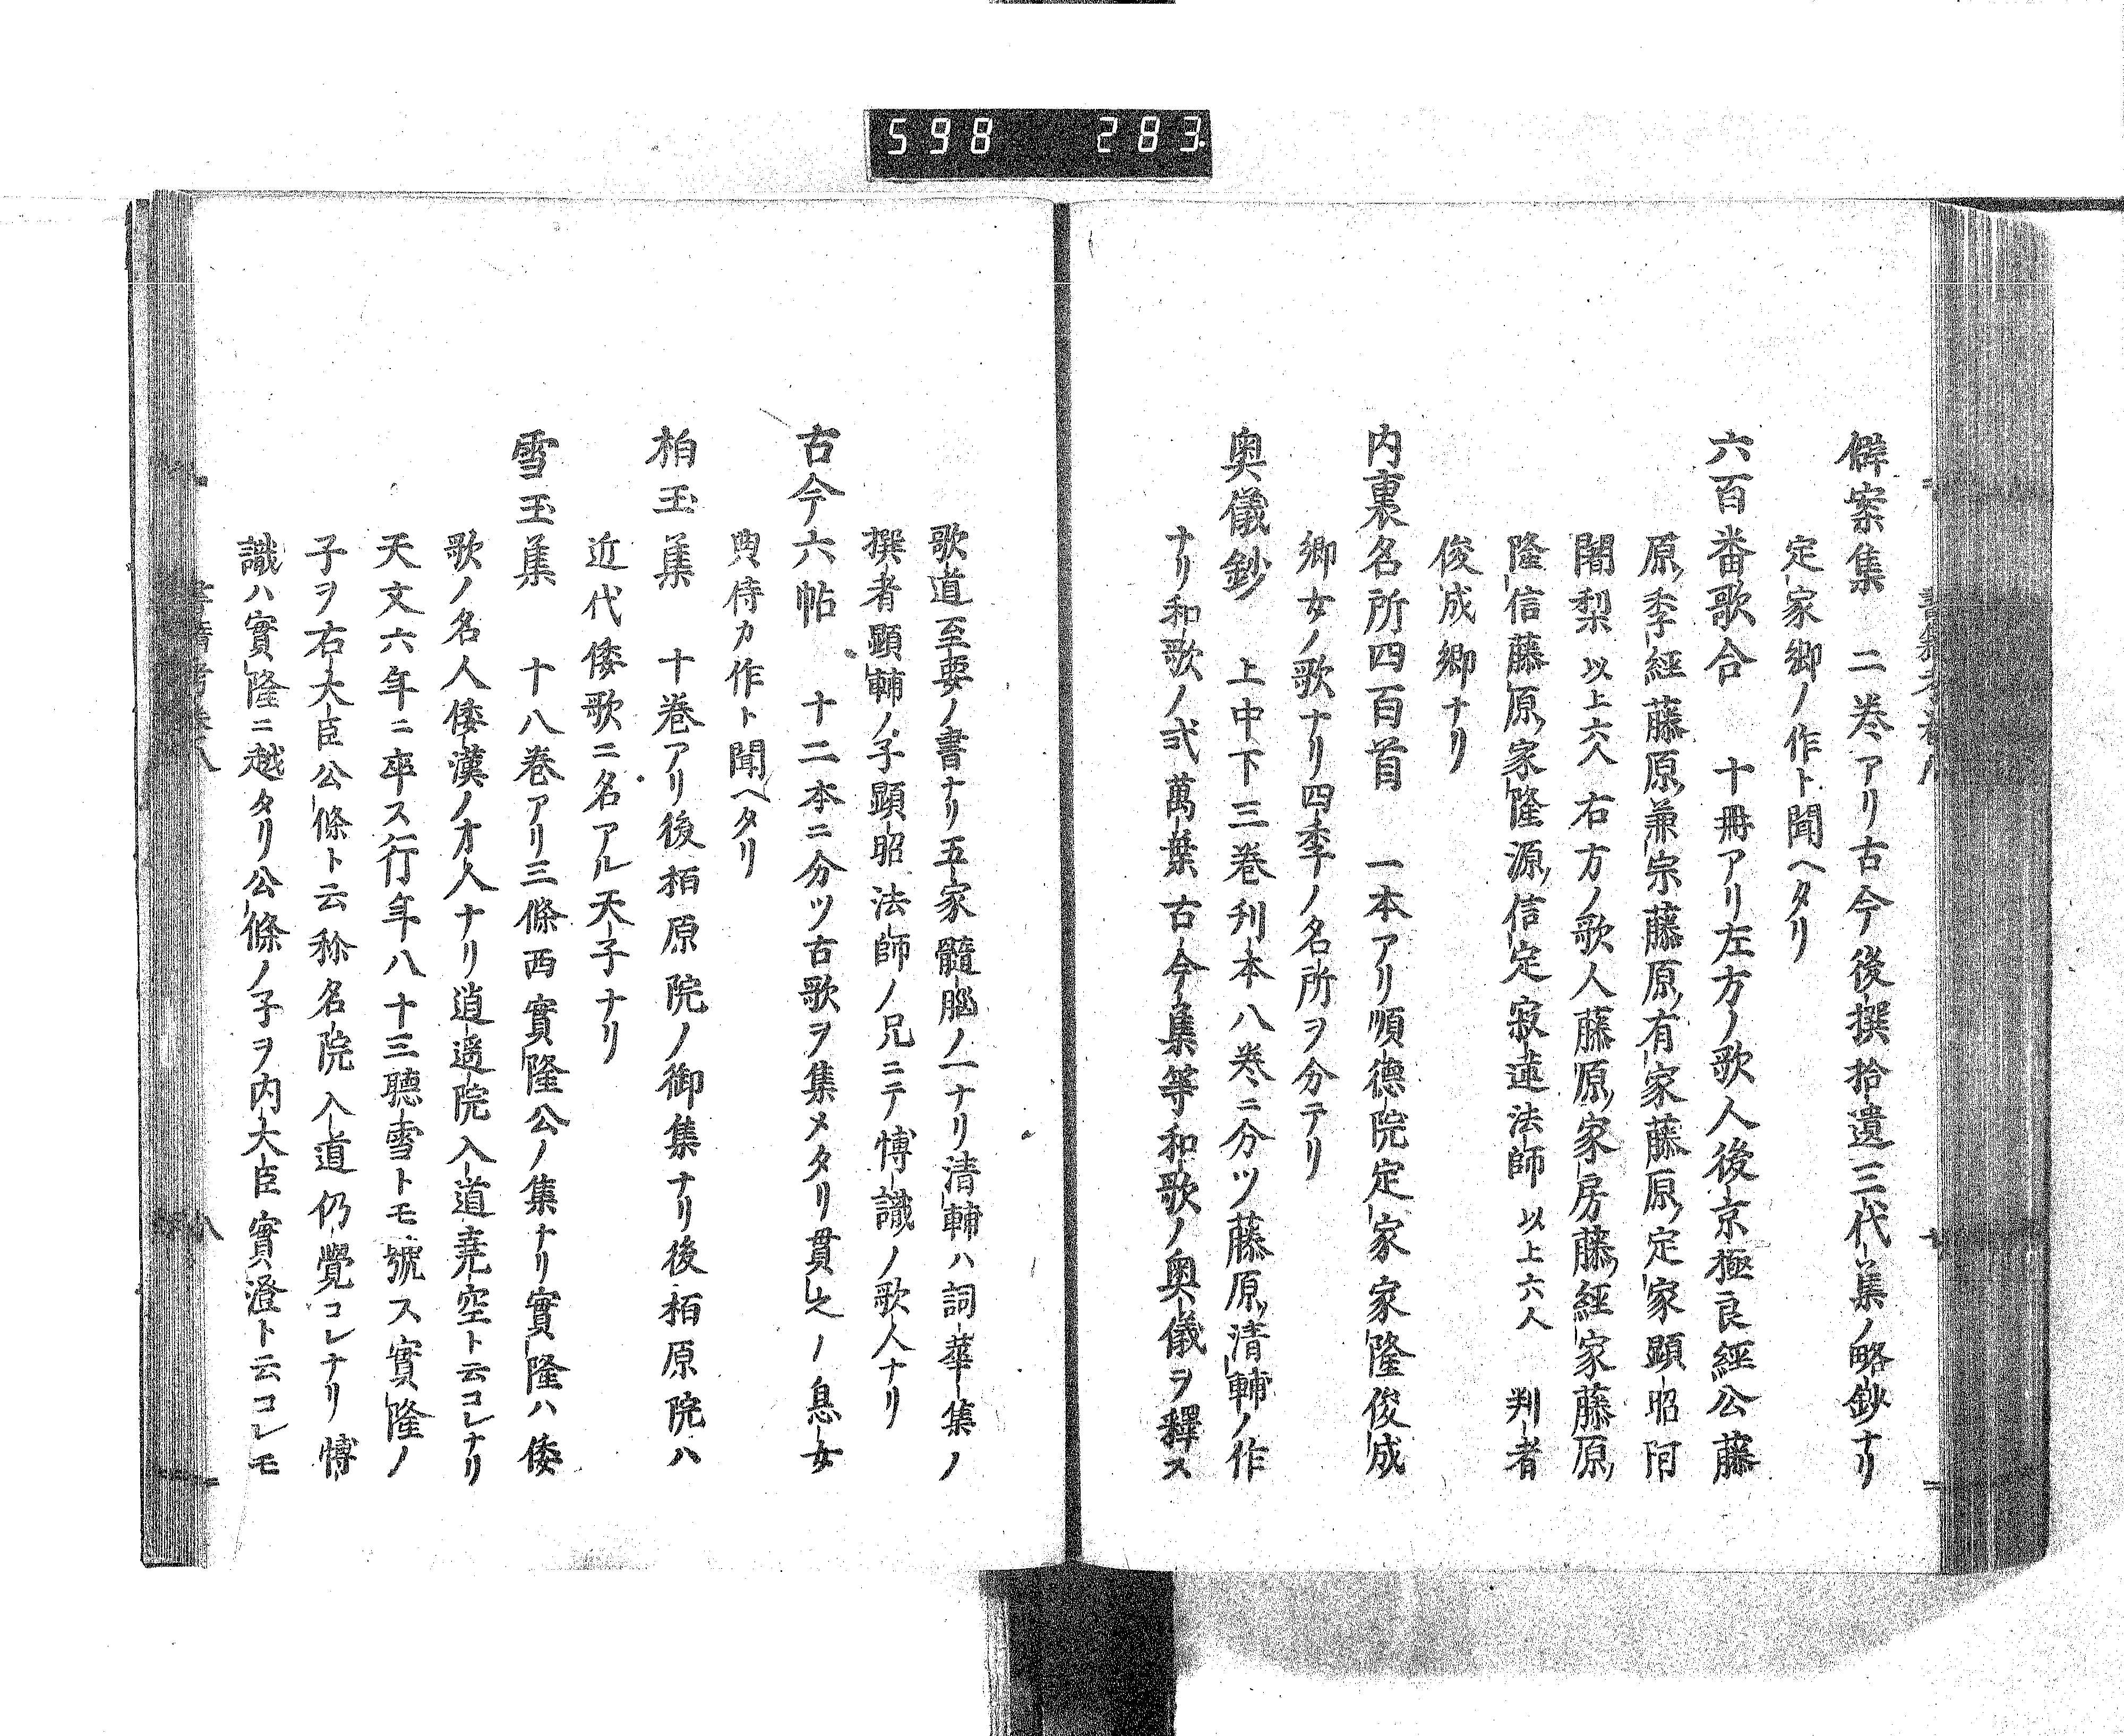 598 283
僻案集 二巻アリ古今後撰拾遺三代集ノ略鈔ナリ
定家卿ノ作ト聞ヘタリ
六百番歌合 十冊アリ左方ノ歌人後京極良經公藤
原季經藤原兼宗藤原有家藤原定家顕昭阿
闍梨 以上六人 右方ノ歌人藤原家房藤經家藤原
隆信藤原家隆源信定寂蓮法師 以上六人 判者
俊成卿ナリ
内裏名所四百首 一本アリ順德院定家家隆俊成
卿女ノ歌ナリ四季ノ名所ヲ分テリ
奥儀鈔 上中下三巻刋本八巻ニ分ツ藤原清輔ノ作
ナリ和歌ノ弐萬葉古今集等和歌ノ奥儀ヲ釋ス
歌道至要ノ書ナリ五家髓腦ノ一ナリ清輔ハ詞華集ノ
撰者顕輔ノ子顕昭法師ノ兄ニテ博識ノ歌人ナリ
古今六帖 十二本ニ分ツ古歌ヲ集メタリ貫之ノ息女
典侍カ作ト聞ヘタリ
柏玉集 十巻アリ後栢原院ノ御集ナリ後栢原院ハ
近代倭歌ニ名アル天子ナリ
雪玉集 十八巻アリ三條西實隆公ノ集ナリ實隆ハ倭
歌ノ名人倭漢ノ才人ナリ逍遥院入道堯空ト云コレナリ
天文六年ニ卒ス行年八十三聴雪トモ號ス實隆ノ
子ヲ右大臣公條ト云称名院入道仍覺コレナリ博
識ハ實隆ニ越タリ公條ノ子ヲ内大臣實澄ト云コレモ
八